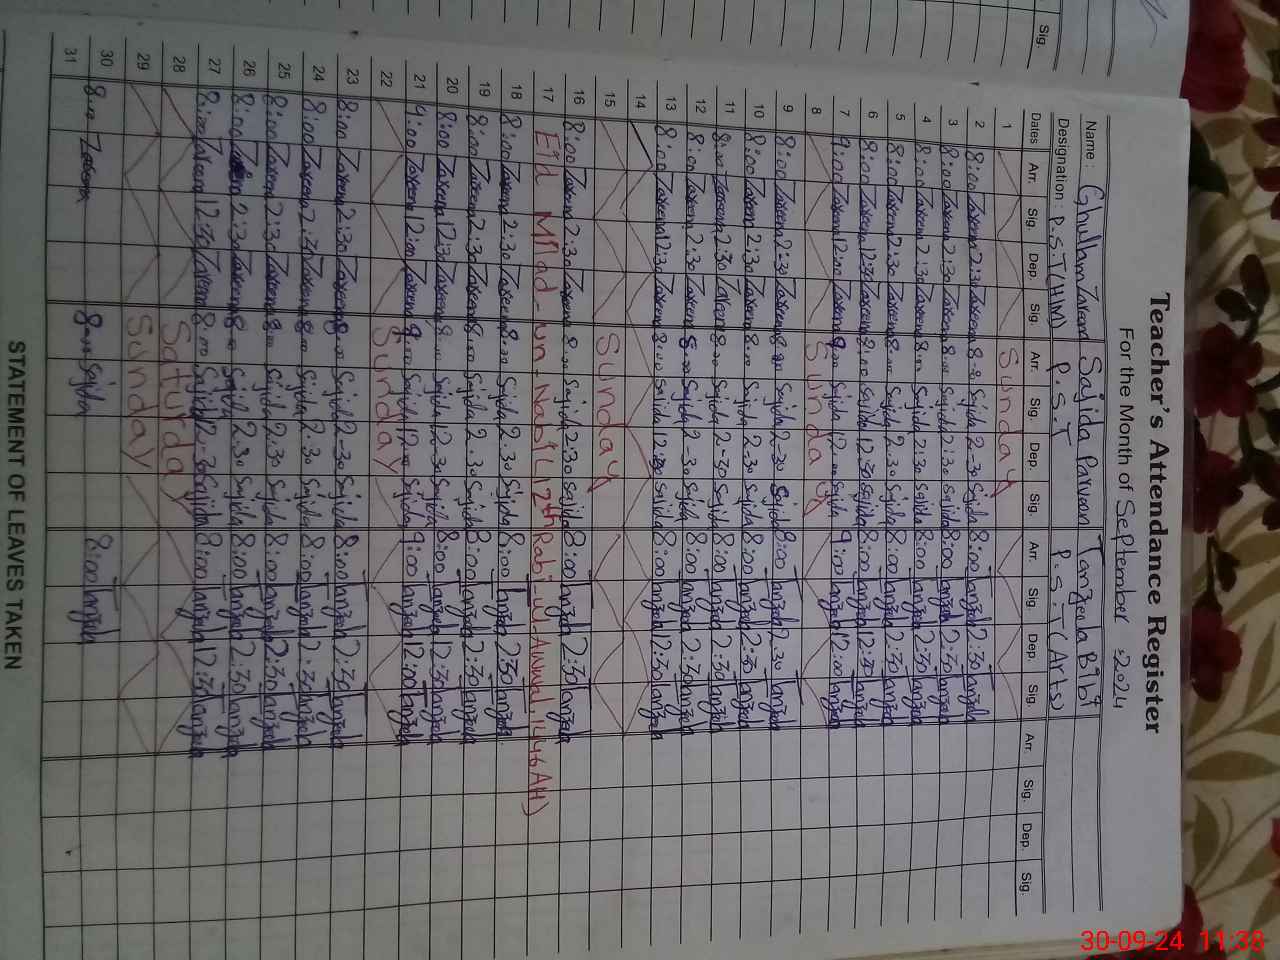 Sig.
Teacher's Attendance Register
For the Month of September 2024
Name: Ghullam Zakeena Sajida Parveen Tanzeela Bibi
Designation: P.S.T(HM) P.S.T P.S.T(Arts)
Dates Arr. Sig. Dep. Sig. Arr. Sig. Dep. Sig. Arr. Sig. Dep. Sig. Arr. Sig. Dep. Sig.
1 Sunday
2 8:00 Zakeena 2:30 Zakeena 8:00 Sajida 2-30 Sajida 8:00 Tanzeela 2:30 Tanzeela
3 8:00 Zakeena 2:30 Zakeena 8:00 Sajida 2:30 Sajida 8:00 Tanzeela 2:30 Tanzeela
4 8:00 Zakeena 2:30 Zakeena 8:00 Sajida 2:30 Sajida 8:00 Tanzeela 2:30 Tanzeela
5 8:00 Zakeena 2:30 Zakeena 8:00 Sajida 2.30 Sajida 8:00 Tanzeela 2:30 Tanzeela
6 8:00 Zakeena 12:30 Zakeena 8:00 Sajida 12:30 Sajida 8:00 Tanzeela 12:30 Tanzeela
7 9:00 Zakeena 12:00 Zakeena 9:00 Sajida 12:00 Sajida 9:00 Tanzeela 12:00 Tanzeela
8 Sunday
9 8:00 Zakeena 2:30 Zakeena 8:00 Sajida 2-30 Sajida 8:00 Tanzeela 2:30 Tanzeela
10 8:00 Zakeena 2:30 Zakeena 8:00 Sajida 2-30 Sajida 8:00 Tanzeela 2:30 Tanzeela
11 8:00 Zakeena 2:30 Zakeena 8:00 Sajida 2-30 Sajida 8:00 Tanzeela 2:30 Tanzeela
12 8:00 Zakeena 2:30 Zakeena 8:00 Sajida 2-30 Sajida 8:00 Tanzeela 2:30 Tanzeela
13 8:00 Zakeena 12:30 Zakeena 8:00 Sajida 12:30 Sajida 8:00 Tanzeela 12:30 Tanzeela
14
15 Sunday
16 8:00 Zakeena 2:30 Zakeena 8:00 Sajida 2:30 Sajida 8:00 Tanzeela 2:30 Tanzeela
17 Eid Milad-un-Nabi (12th Rabi-ul-Awwal 1446 AH)
18 8:00 Zakeena 2:30 Zakeena 8:00 Sajida 2.30 Sajida 8:00 Tanzeela 2:30 Tanzeela
19 8:00 Zakeena 2:30 Zakeena 8:00 Sajida 2.30 Sajida 8:00 Tanzeela 2:30 Tanzeela
20 8:00 Zakeena 12:30 Zakeena 8:00 Sajida 12-30 Sajida 8:00 Tanzeela 12:30 Tanzeela
21 9:00 Zakeena 12:00 Zakeena 9:00 Sajida 12:00 Sajida 9:00 Tanzeela 12:00 Tanzeela
22 Sunday
23 8:00 Zakeena 2:30 Zakeena 8:00 Sajida 2-30 Sajida 8:00 Tanzeela 2:30 Tanzeela
24 8:00 Zakeena 2:30 Zakeena 8:00 Sajida 2.30 Sajida 8:00 Tanzeela 2:30 Tanzeela
25 8:00 Zakeena 2:30 Zakeena 8:00 Sajida 2.30 Sajida 8:00 Tanzeela 2:30 Tanzeela
26 8:00 Zakeena 2:30 Zakeena 8:00 Sajida 2.30 Sajida 8:00 Tanzeela 2:30 Tanzeela
27 8:00 Zakeena 12:30 Zakeena 8:00 Sajida 12-30 Sajida 8:00 Tanzeela 12:30 Tanzeela
28 Saturday
29 Sunday
30 8:00 Zakeena 8:00 Sajida 8:00 Tanzeela
31
STATEMENT OF LEAVES TAKEN
30-09-24 11:38